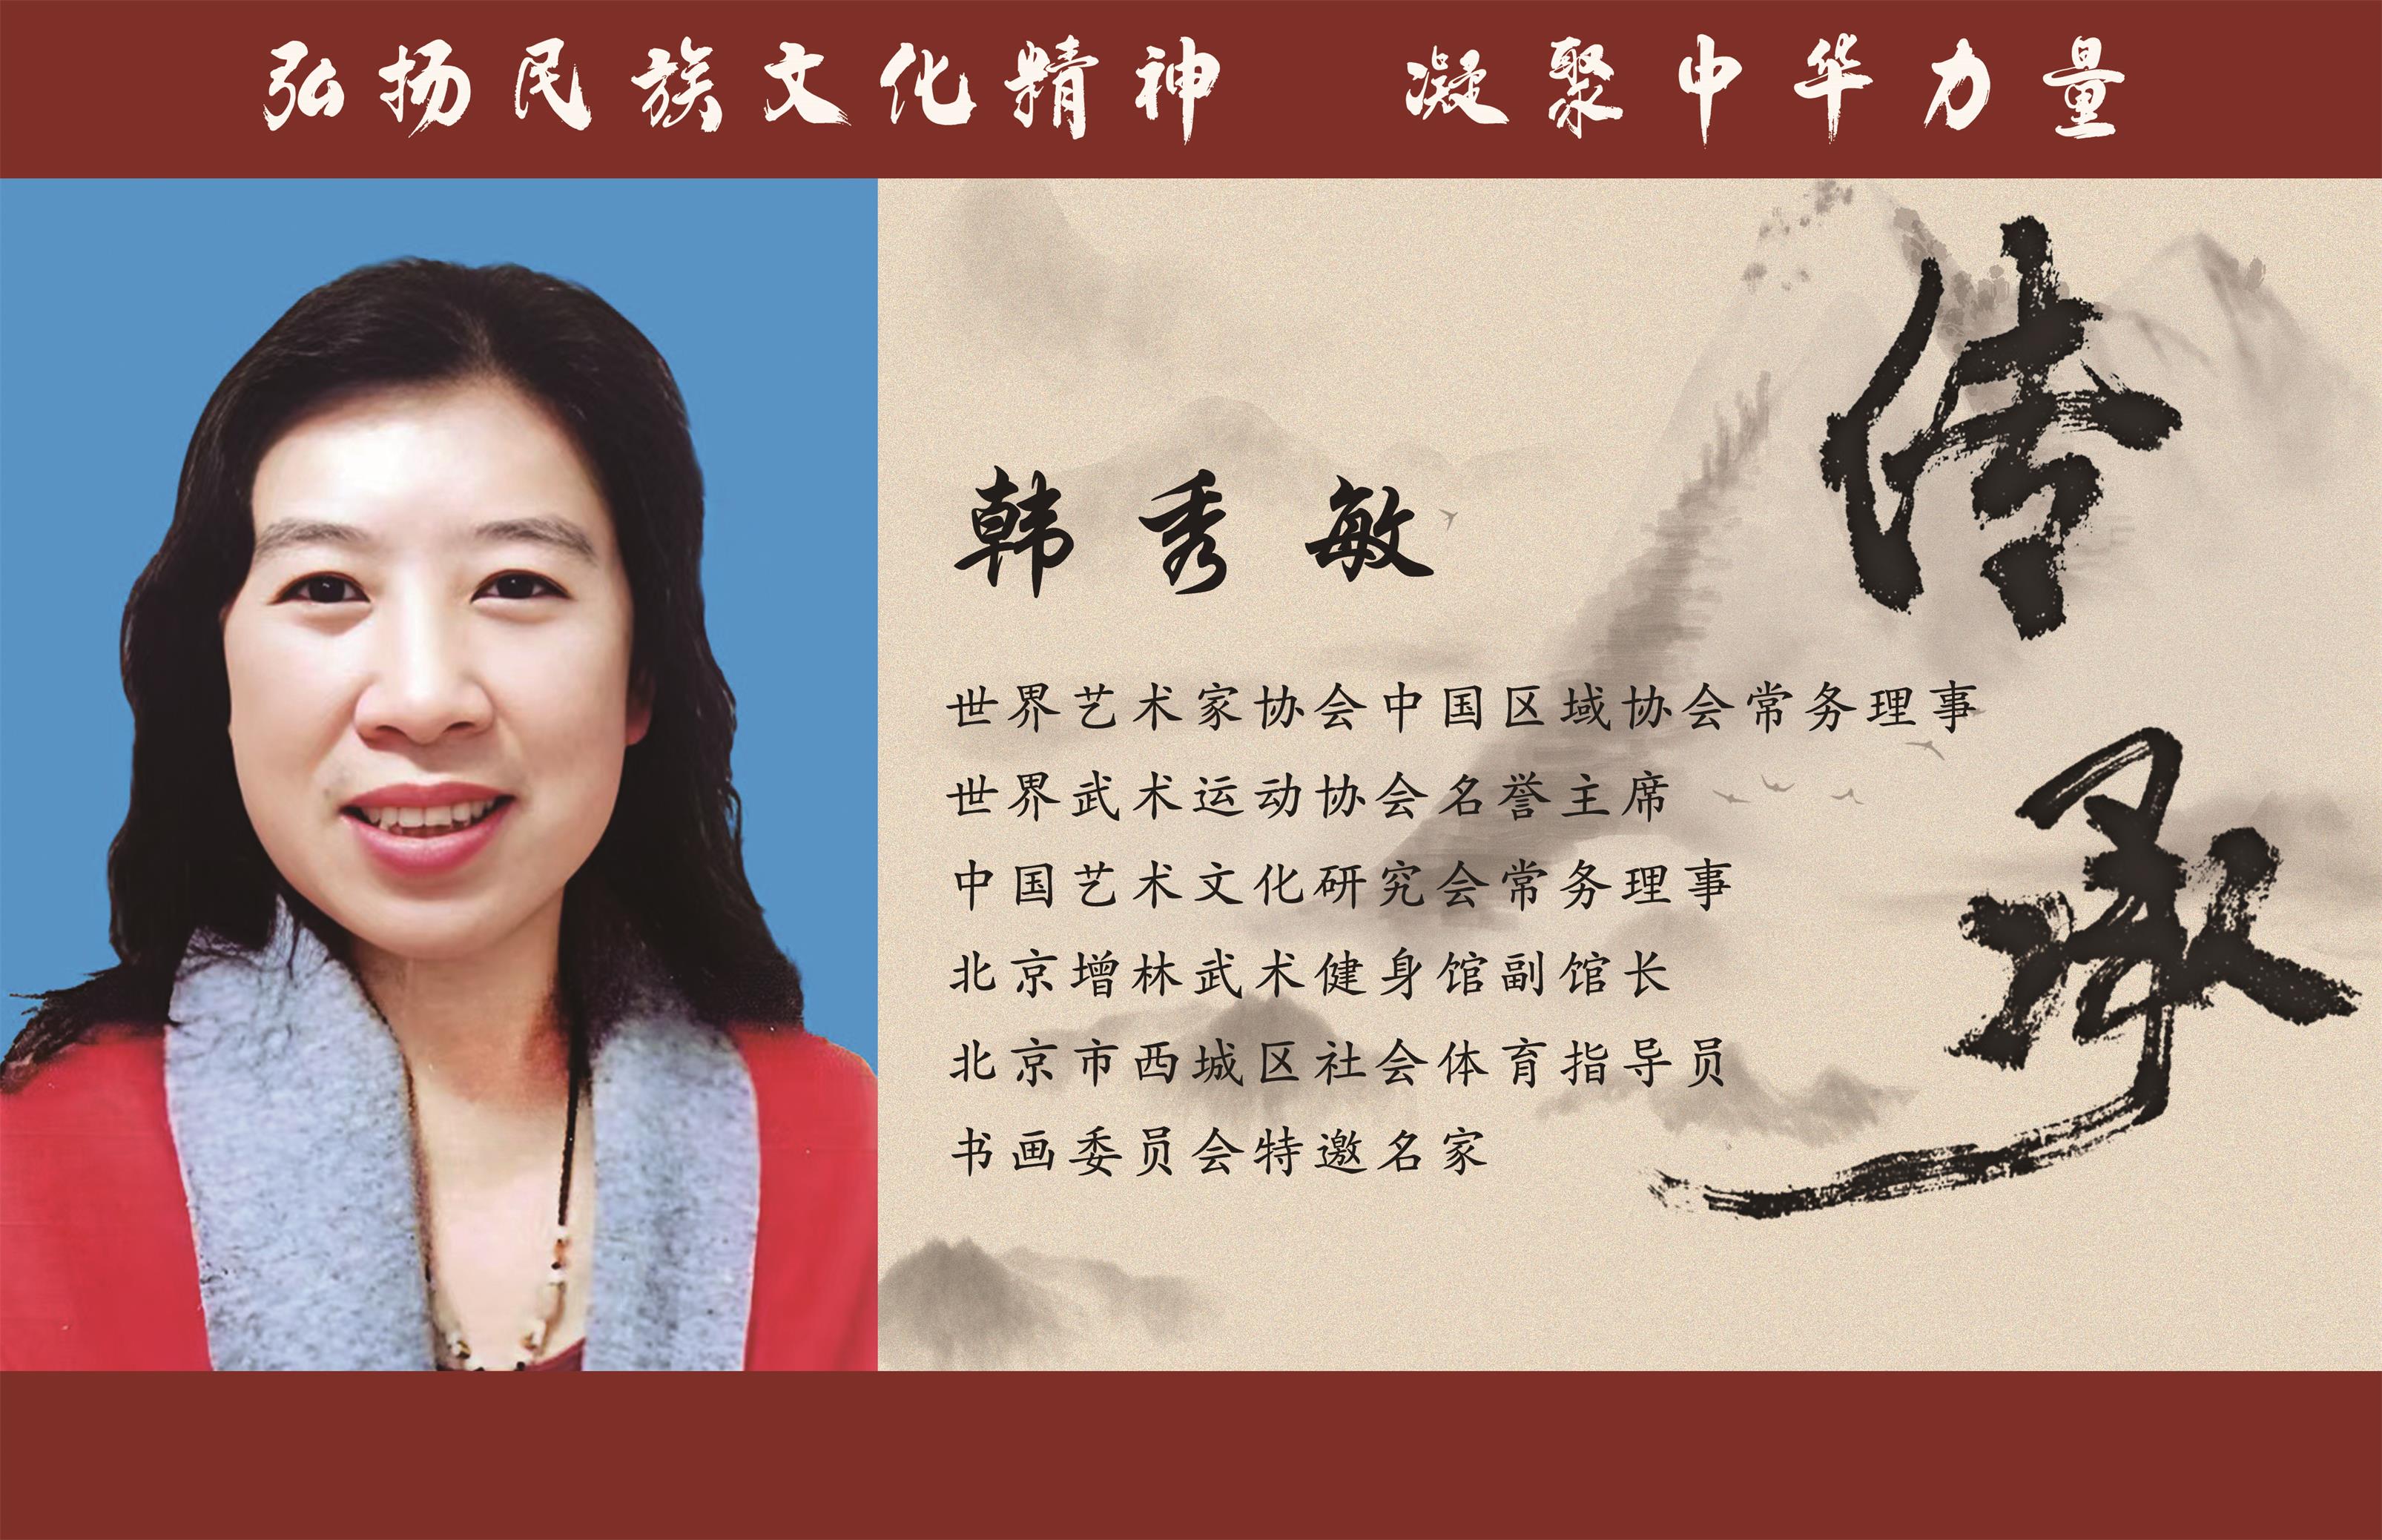 弘扬民族文化精神 凝聚中华力量
传承
韩秀敏
世界艺术家协会中国区域协会常务理事
世界武术运动协会名誉主席
中国艺术文化研究会常务理事
北京增林武术健身馆副馆长
北京市西城区社会体育指导员
书画委员会特邀名家